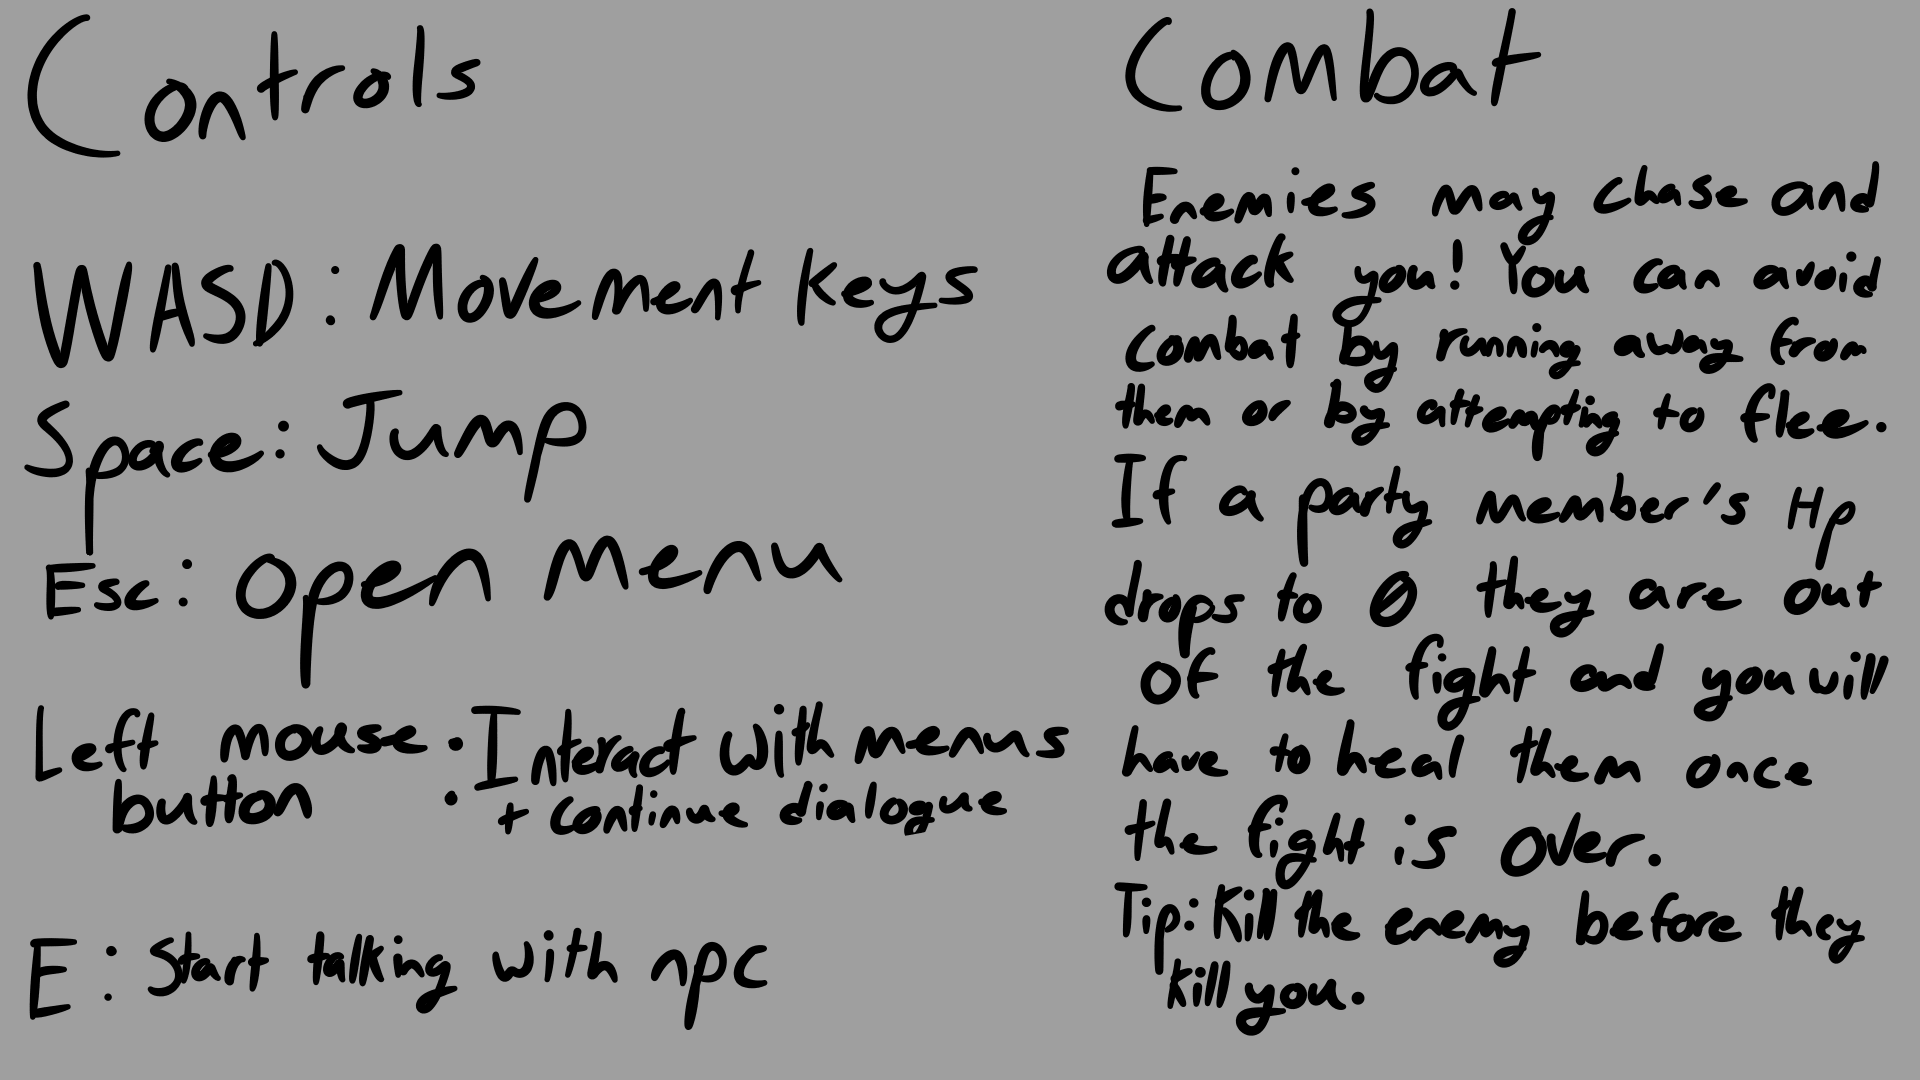 Controls
WASD: Movement keys
Space: Jump
Esc: Open Menu
Left mouse : Interact with menus
button : + continue dialogue
E: Start talking with npc
Combat
Enemies may chase and
attack you! You can avoid
combat by running away from
them or by attempting to flee.
If a party member's Hp
drops to 0 they are out
of the fight and you will
have to heal them once
the fight is over.
Tip: Kill the enemy before they
kill you.